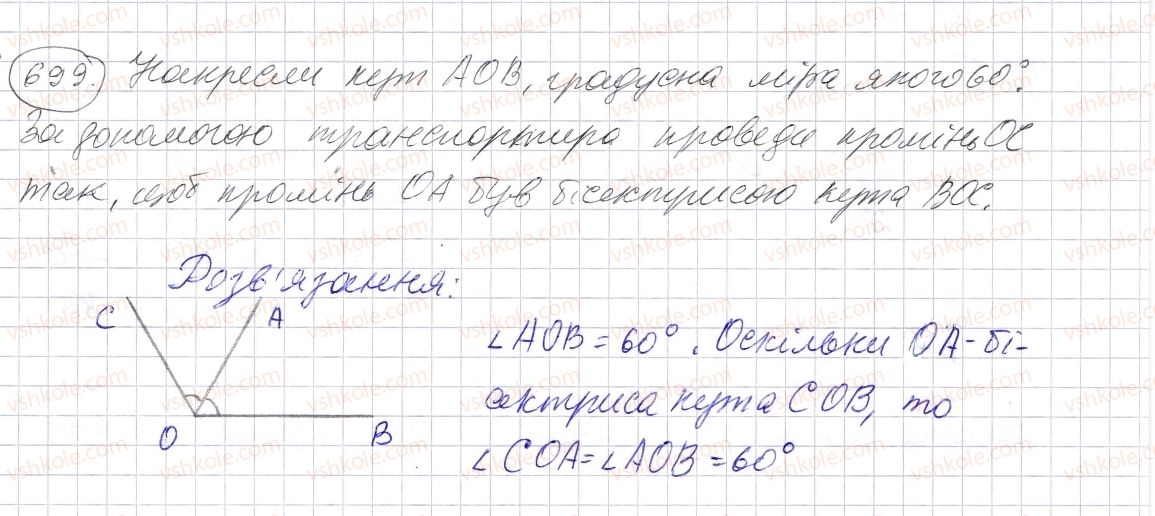 699. Накресли кут AOB, градусна міра якого 60°.
За допомогою транспортира проведи промінь OC
так, щоб промінь OA був бісектрисою кута BOC.
Розв'язання:
C
A
O
B
∠AOB = 60°. Оскільки OA - бі-
сектриса кута COB, то
∠COA = ∠AOB = 60°
vshkole.com